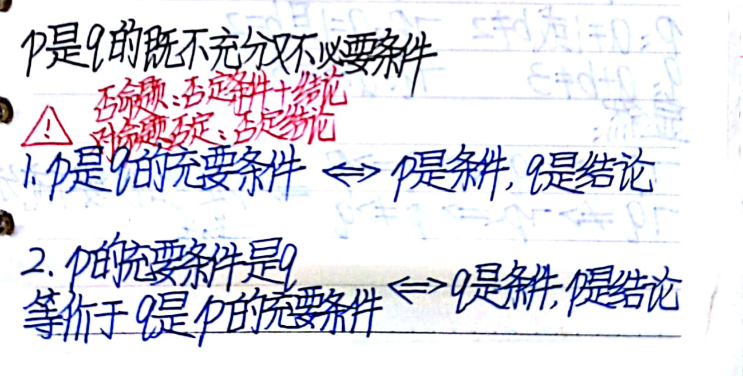 p是q的既不充分又不必要条件
否命题:否定条件+结论
对命题否定:否定结论
1. p是q的充要条件 ⟺ p是条件,q是结论
2. p的充要条件是q
等价于q是p的充要条件 ⟺ q是条件,p是结论